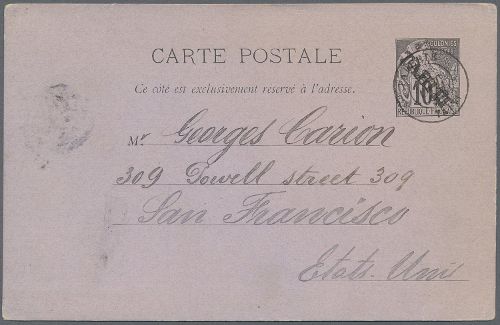 COLONIES
CARTE POSTALE
10
Ce côté est exclusivement réservé à l'adresse.
Mr. Georges Carion
309 Powell street 309
San Francisco
Etats-Unis